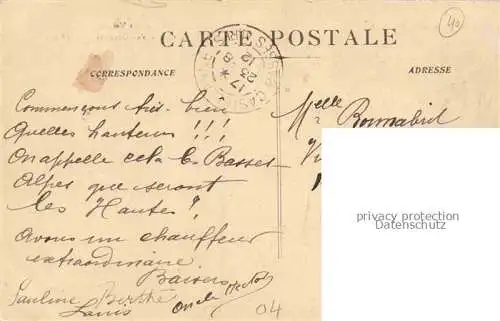 CARTE POSTALE
CORRESPONDANCE
ADRESSE
Commençons très bien
Quelles hauteurs !!!
On appelle cela les Basses
Alpes que seront
les Hautes ?
Avons un chauffeur
extraordinaire.
Baisers
Pauline Berthe
Louis
Melle
privacy protection
www.oldthing.de
04
40